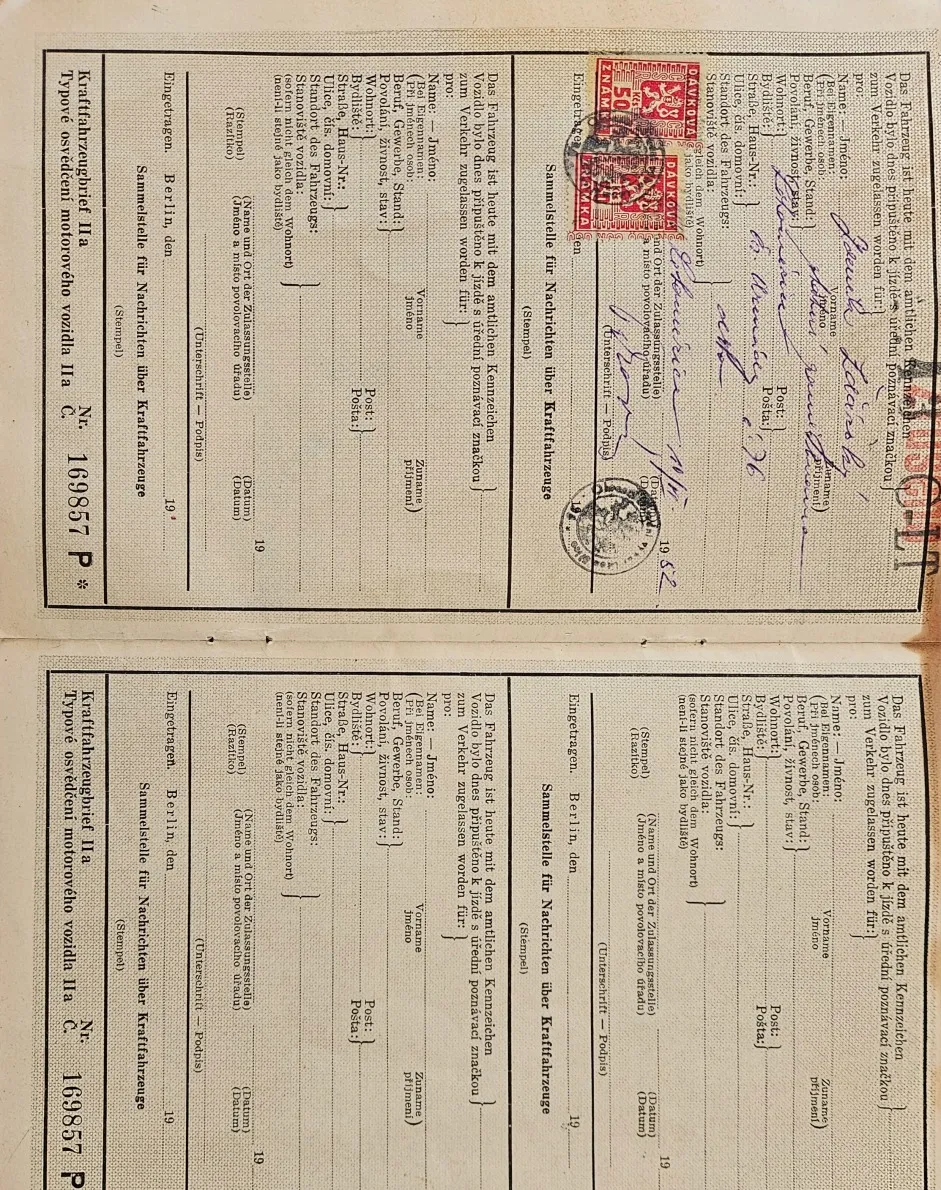 Das Fahrzeug ist heute mit dem amtlichen Kennzeichen
Vozidlo bylo dnes připuštěno k jízdě s úřední poznávací značkou
C-LT
zum Verkehr zugelassen worden für:
pro:
Name: — Jméno:
(Bei Eigennamen: Vorname Zuname)
(Při jménech osob: jméno příjmení)
Beruf, Gewerbe, Stand:
Povolání, živnost, stav:
Wohnort: Post:
Bydliště: Pošta:
Straße, Haus-Nr.:
Ulice, čís. domovní: č. 76
Standort des Fahrzeugs:
Stanoviště vozidla:
gleich dem Wohnort)
jako bydliště)
und Ort der Zulassungsstelle) (Datum)
a místo povolovacího úřadu) (Datum)
19 52
(Unterschrift — Podpis)
DÁVKOVÁ
50 Kčs
ZNÁMKA
DÁVKOVÁ
ZNÁMKA
Eingetragen den
Sammelstelle für Nachrichten über Kraftfahrzeuge
(Stempel)
Das Fahrzeug ist heute mit dem amtlichen Kennzeichen
Vozidlo bylo dnes připuštěno k jízdě s úřední poznávací značkou
zum Verkehr zugelassen worden für:
pro:
Name: — Jméno:
(Bei Eigennamen: Vorname Zuname)
(Při jménech osob: jméno příjmení)
Beruf, Gewerbe, Stand:
Povolání, živnost, stav:
Wohnort: Post:
Bydliště: Pošta:
Straße, Haus-Nr.:
Ulice, čís. domovní:
Standort des Fahrzeugs:
Stanoviště vozidla:
(sofern nicht gleich dem Wohnort)
(není-li stejné jako bydliště)
19
(Stempel) (Name und Ort der Zulassungsstelle) (Datum)
(Razítko) (Jméno a místo povolovacího úřadu) (Datum)
(Unterschrift — Podpis)
Eingetragen. Berlin, den 19
Sammelstelle für Nachrichten über Kraftfahrzeuge
(Stempel)
Kraftfahrzeugbrief IIa Nr.
Typové osvědčení motorového vozidla IIa Č. 169857 P *
Das Fahrzeug ist heute mit dem amtlichen Kennzeichen
Vozidlo bylo dnes připuštěno k jízdě s úřední poznávací značkou
zum Verkehr zugelassen worden für:
pro:
Name: — Jméno:
(Bei Eigennamen: Vorname Zuname)
(Při jménech osob: jméno příjmení)
Beruf, Gewerbe, Stand:
Povolání, živnost, stav:
Wohnort: Post:
Bydliště: Pošta:
Straße, Haus-Nr.:
Ulice, čís. domovní:
Standort des Fahrzeugs:
Stanoviště vozidla:
(sofern nicht gleich dem Wohnort)
(není-li stejné jako bydliště)
19
(Stempel) (Name und Ort der Zulassungsstelle) (Datum)
(Razítko) (Jméno a místo povolovacího úřadu) (Datum)
(Unterschrift — Podpis)
Eingetragen. Berlin, den 19
Sammelstelle für Nachrichten über Kraftfahrzeuge
(Stempel)
Das Fahrzeug ist heute mit dem amtlichen Kennzeichen
Vozidlo bylo dnes připuštěno k jízdě s úřední poznávací značkou
zum Verkehr zugelassen worden für:
pro:
Name: — Jméno:
(Bei Eigennamen: Vorname Zuname)
(Při jménech osob: jméno příjmení)
Beruf, Gewerbe, Stand:
Povolání, živnost, stav:
Wohnort: Post:
Bydliště: Pošta:
Straße, Haus-Nr.:
Ulice, čís. domovní:
Standort des Fahrzeugs:
Stanoviště vozidla:
(sofern nicht gleich dem Wohnort)
(není-li stejné jako bydliště)
19
(Stempel) (Name und Ort der Zulassungsstelle) (Datum)
(Razítko) (Jméno a místo povolovacího úřadu) (Datum)
(Unterschrift — Podpis)
Eingetragen. Berlin, den 19
Sammelstelle für Nachrichten über Kraftfahrzeuge
(Stempel)
Kraftfahrzeugbrief IIa Nr.
Typové osvědčení motorového vozidla IIa Č. 169857 P